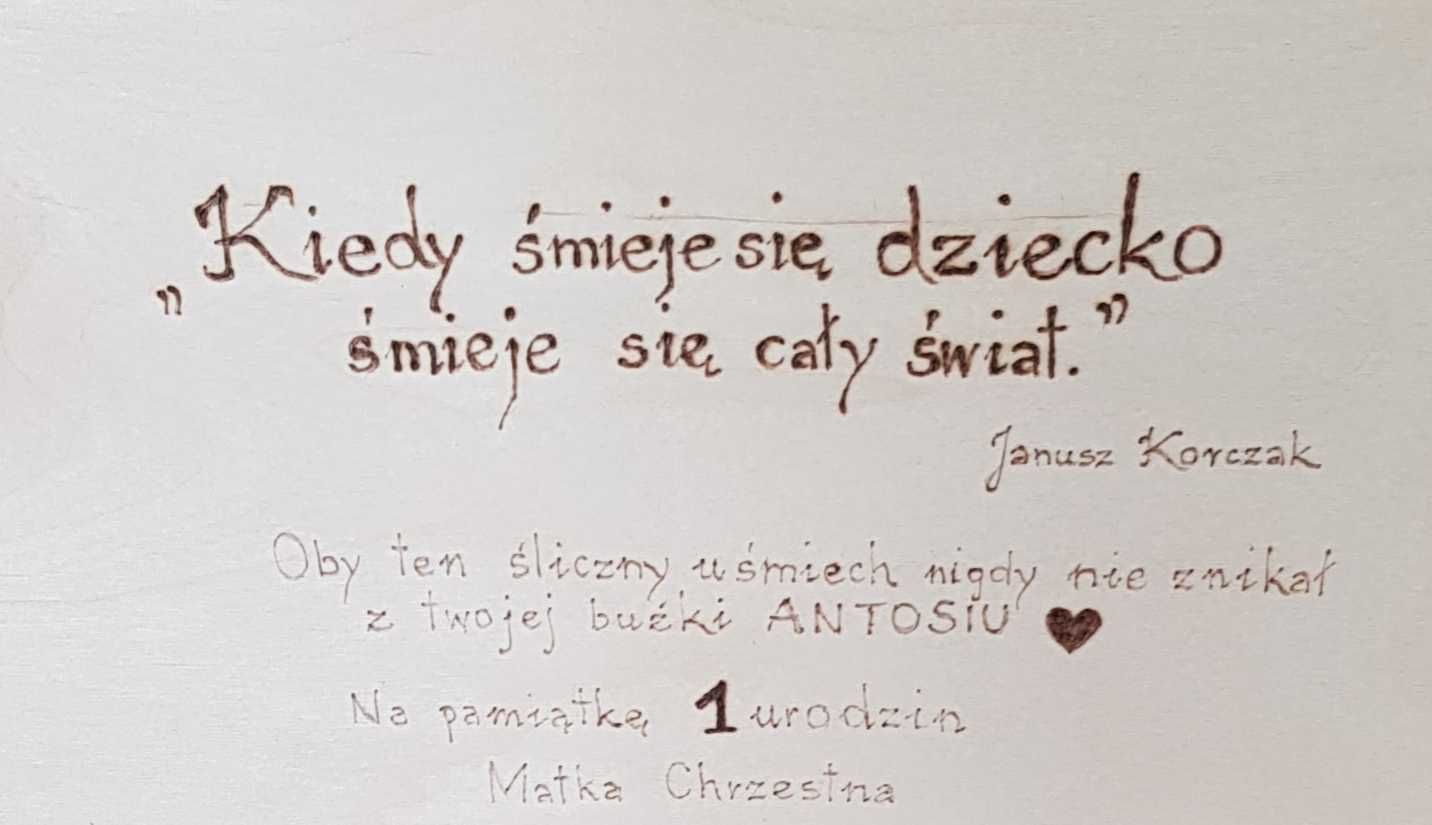 „Kiedy śmieje się dziecko
śmieje się cały świat.”
Janusz Korczak
Oby ten śliczny uśmiech nigdy nie znikał
z twojej buźki ANTOSIU ♥
Na pamiątkę 1 urodzin
Matka Chrzestna